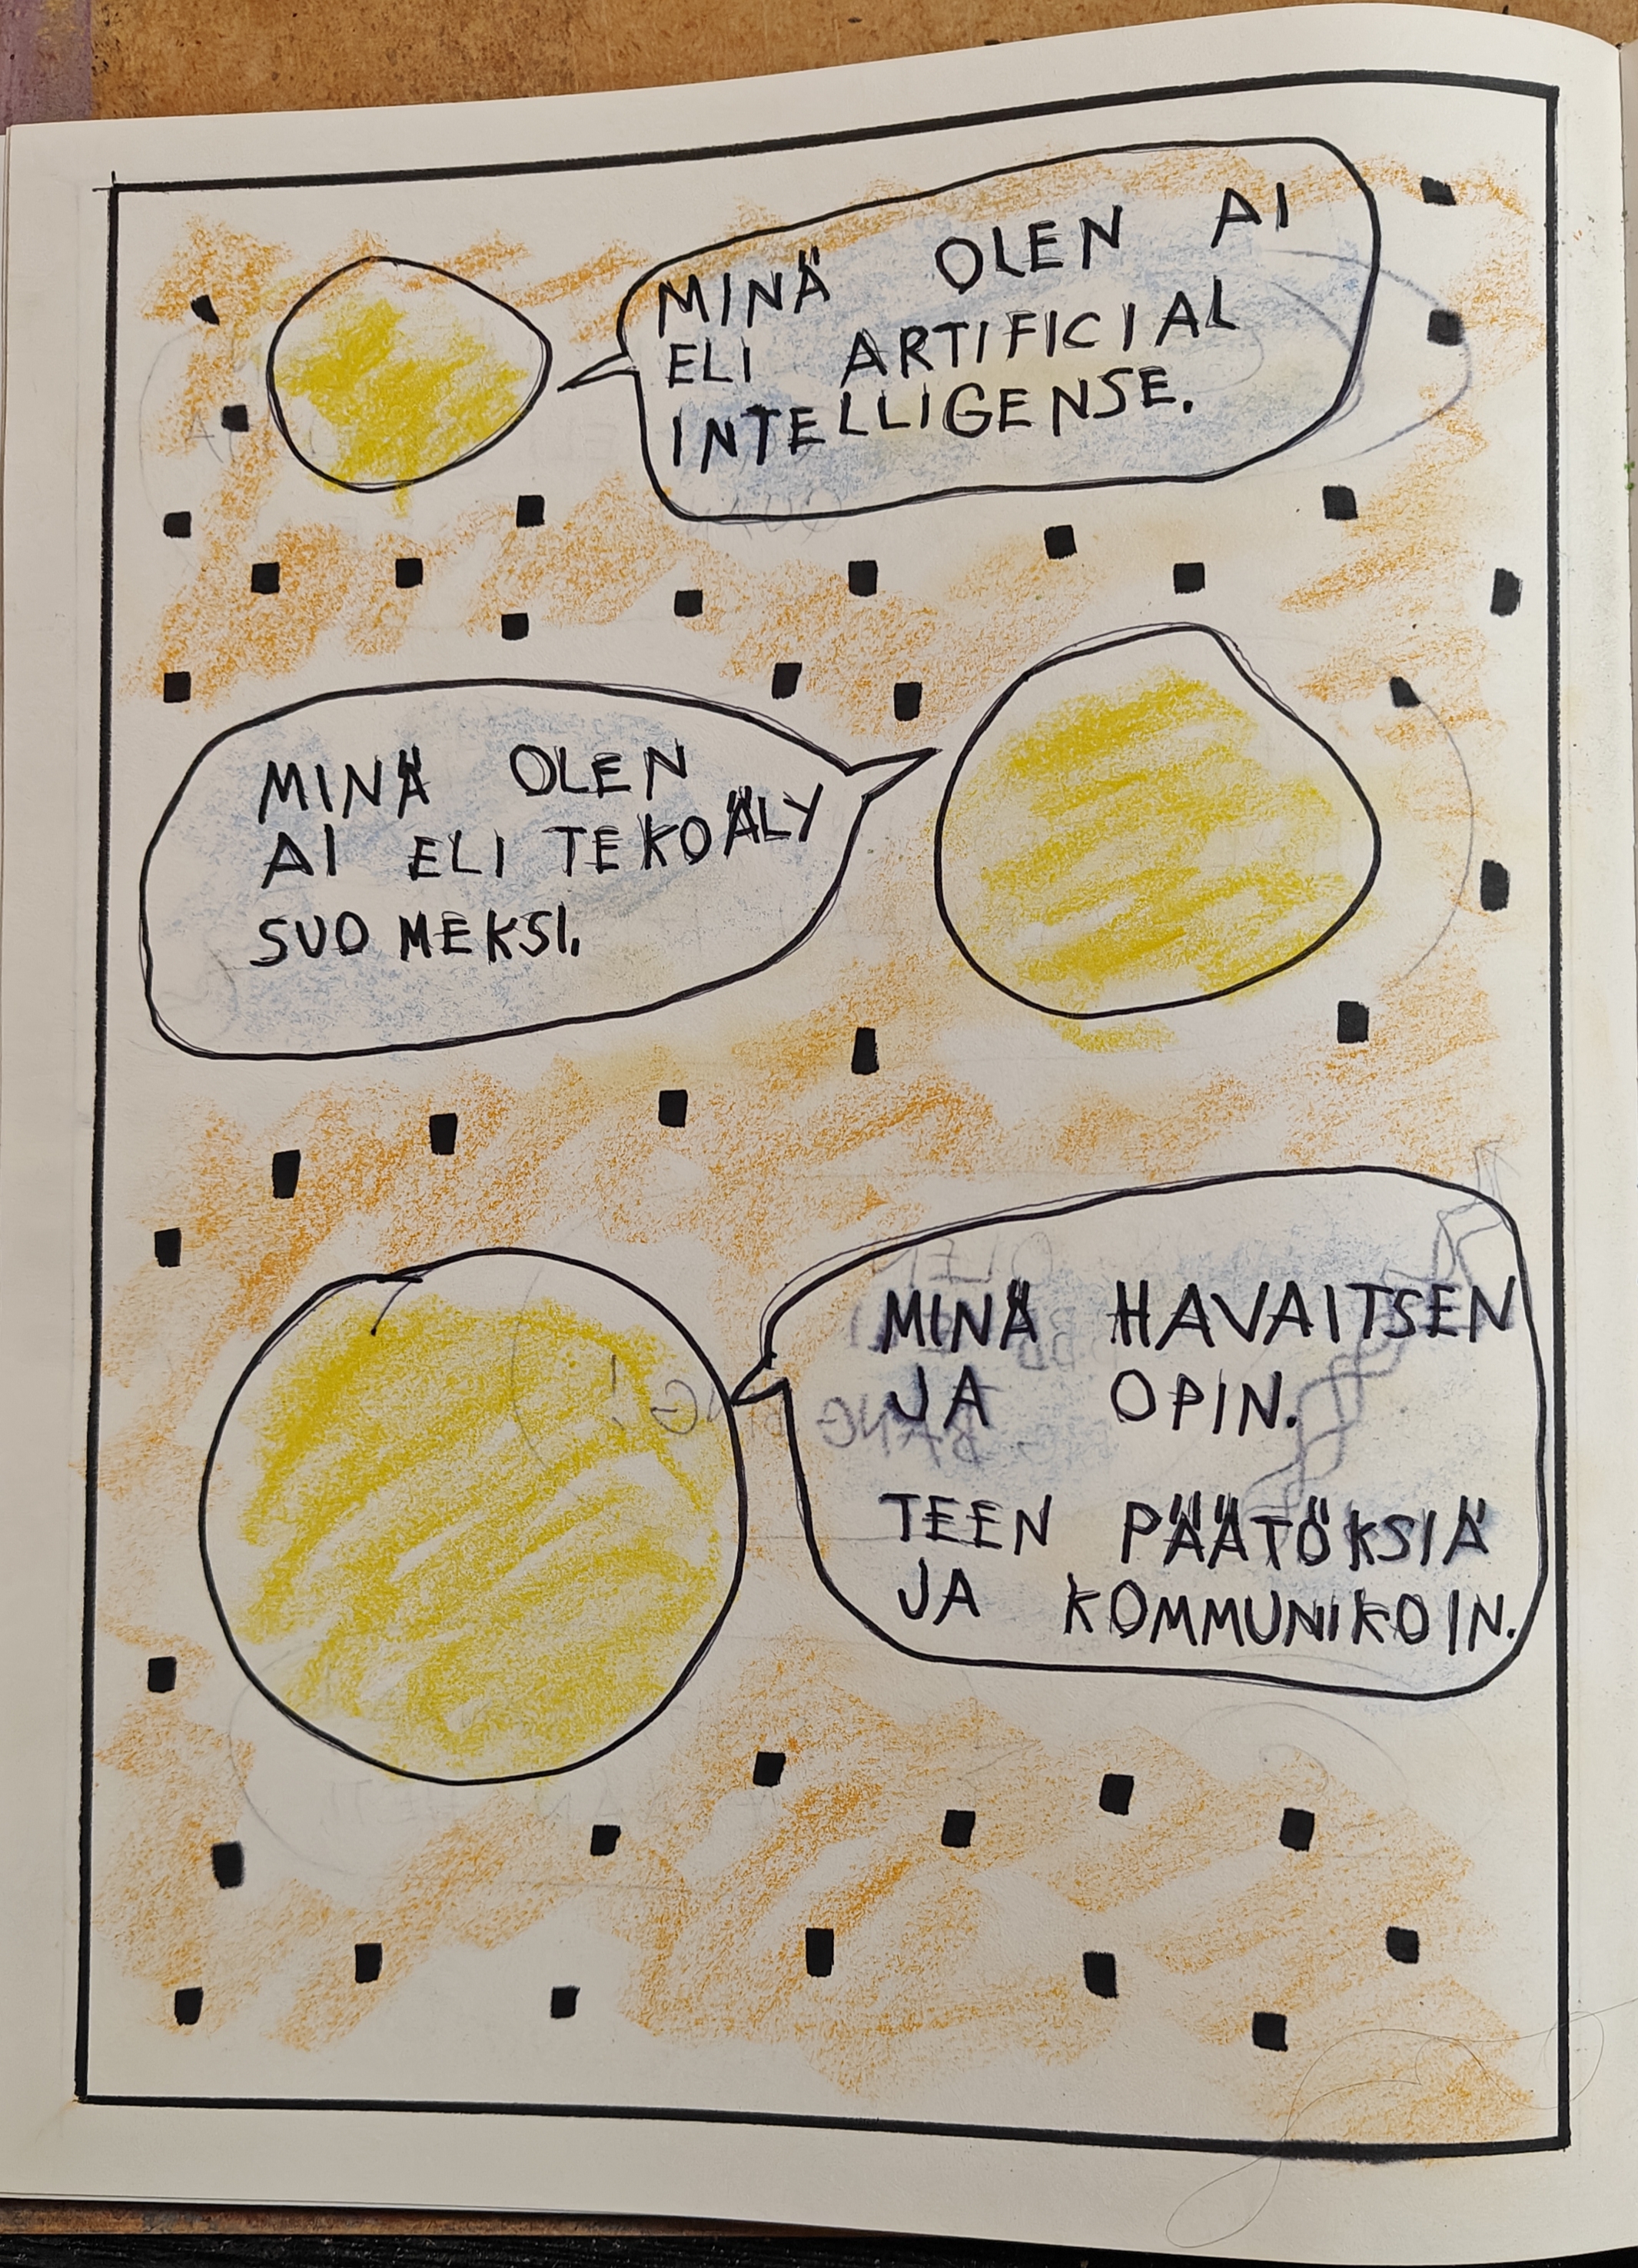 MINÄ OLEN AI
ELI ARTIFICIAL
INTELLIGENSE.
MINÄ OLEN
AI ELI TEKOÄLY
SUOMEKSI.
MINÄ HAVAITSEN
JA OPIN.
TEEN PÄÄTÖKSIÄ
JA KOMMUNIKOIN.